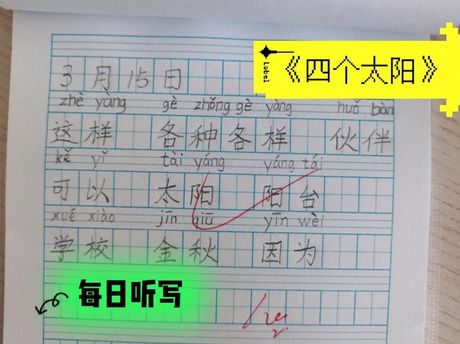 《四个太阳》
Label
3月15日
zhè yàng gè zhǒng gè yàng huǒ bàn
这样 各种各样 伙伴
kě yǐ tài yáng yáng tái
可以 太阳 阳台
xué xiào jīn qiū yīn wèi
学校 金秋 因为
每日听写